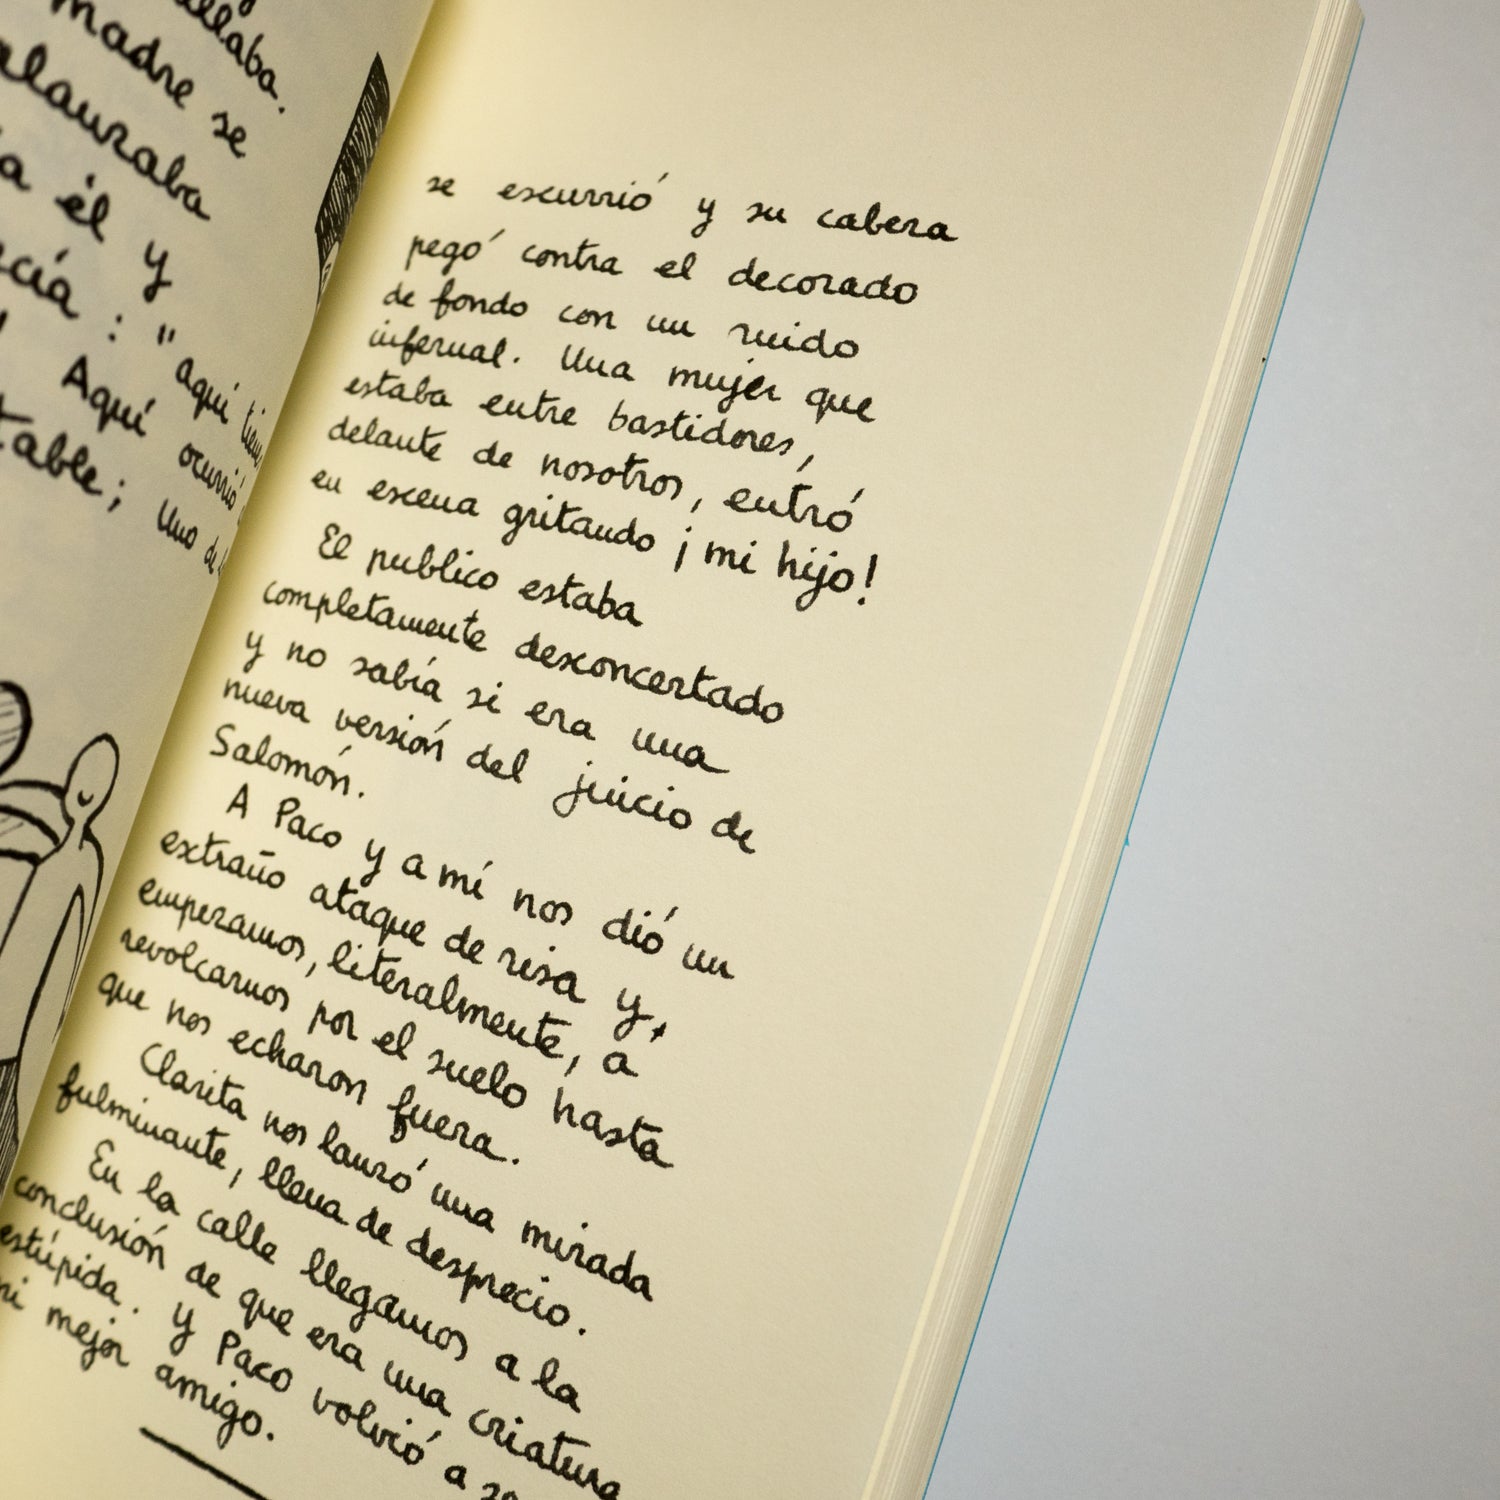 llaba.
madre se
alauraba
a él y
cía : "aquí
Aquí ocurrió
table; Uno de
se escurrió y su cabeza
pegó contra el decorado
de fondo con un ruido
infernal. Una mujer que
estaba entre bastidores,
delante de nosotros, entró
en escena gritando ¡mi hijo!
El publico estaba
completamente desconcertado
y no sabía si era una
nueva versión del juicio de
Salomón.
A Paco y a mí nos dió un
extraño ataque de risa y,
empezamos, literalmente, a
revolcarnos por el suelo hasta
que nos echaron fuera.
Clarita nos lanzó una mirada
fulminante, llena de desprecio.
En la calle llegamos a la
conclusión de que era una criatura
estúpida. Y Paco volvió a se
mi mejor amigo.